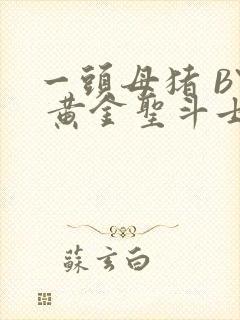 一頭母猪 BY
黄金聖斗士
蘇玄白